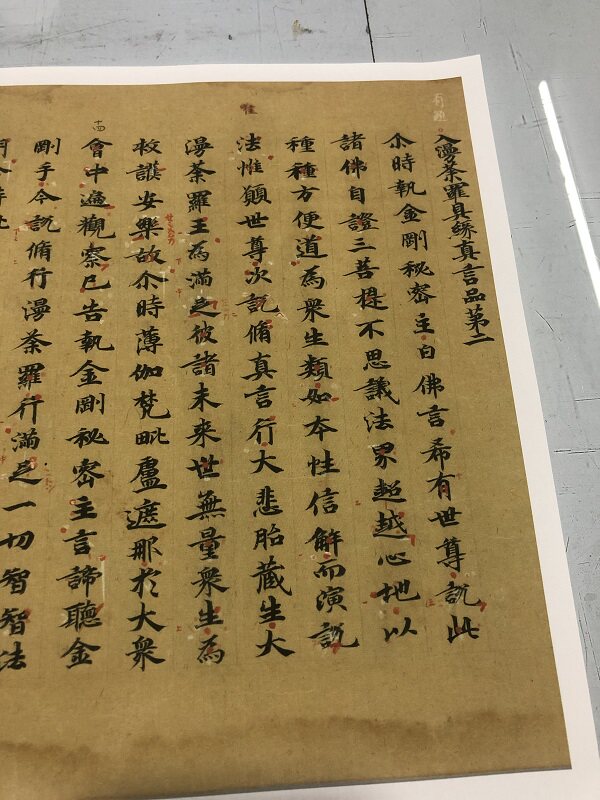 入漫荼羅具緣真言品第二
尒時執金剛秘密主白佛言希有世尊說此
諸佛自證三菩提不思議法界超越心地以
種種方便道為衆生類如本性信解而演說
法惟願世尊次說脩真言行大悲胎藏生大
漫荼羅王為滿足彼諸未來世無量衆生為
救護安樂故尒時薄伽梵毗盧遮那於大衆
會中遍觀察已告執金剛秘密主言諦聽金
剛手今說脩行漫荼羅行滿足一切智智法